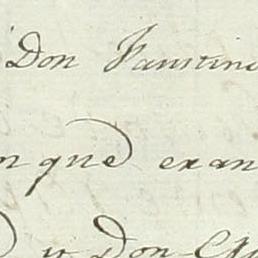 Don Faustin
n que exan
y Don